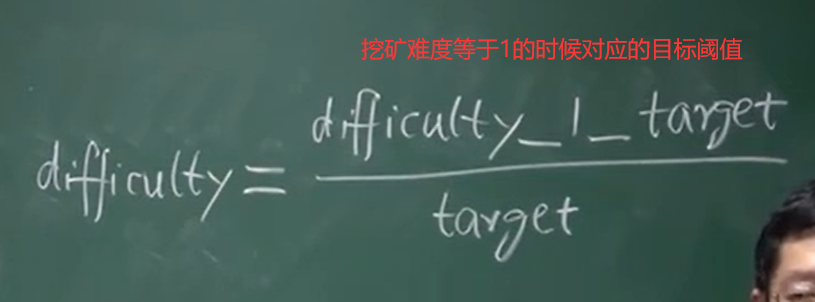 挖矿难度等于1的时候对应的目标阈值
difficulty = difficulty_1_target
target